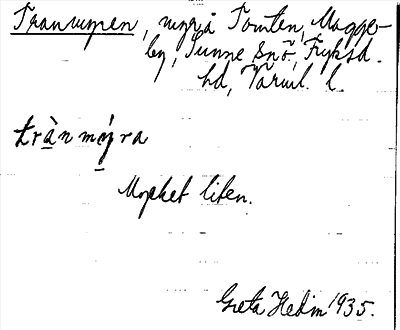 Tranmyren, myr å Tomten, Magge-
by, Sunne snö, Fryksd.
hd, Värml. l.
trànmýra
Mycket liten.
Greta Hedin 1935.